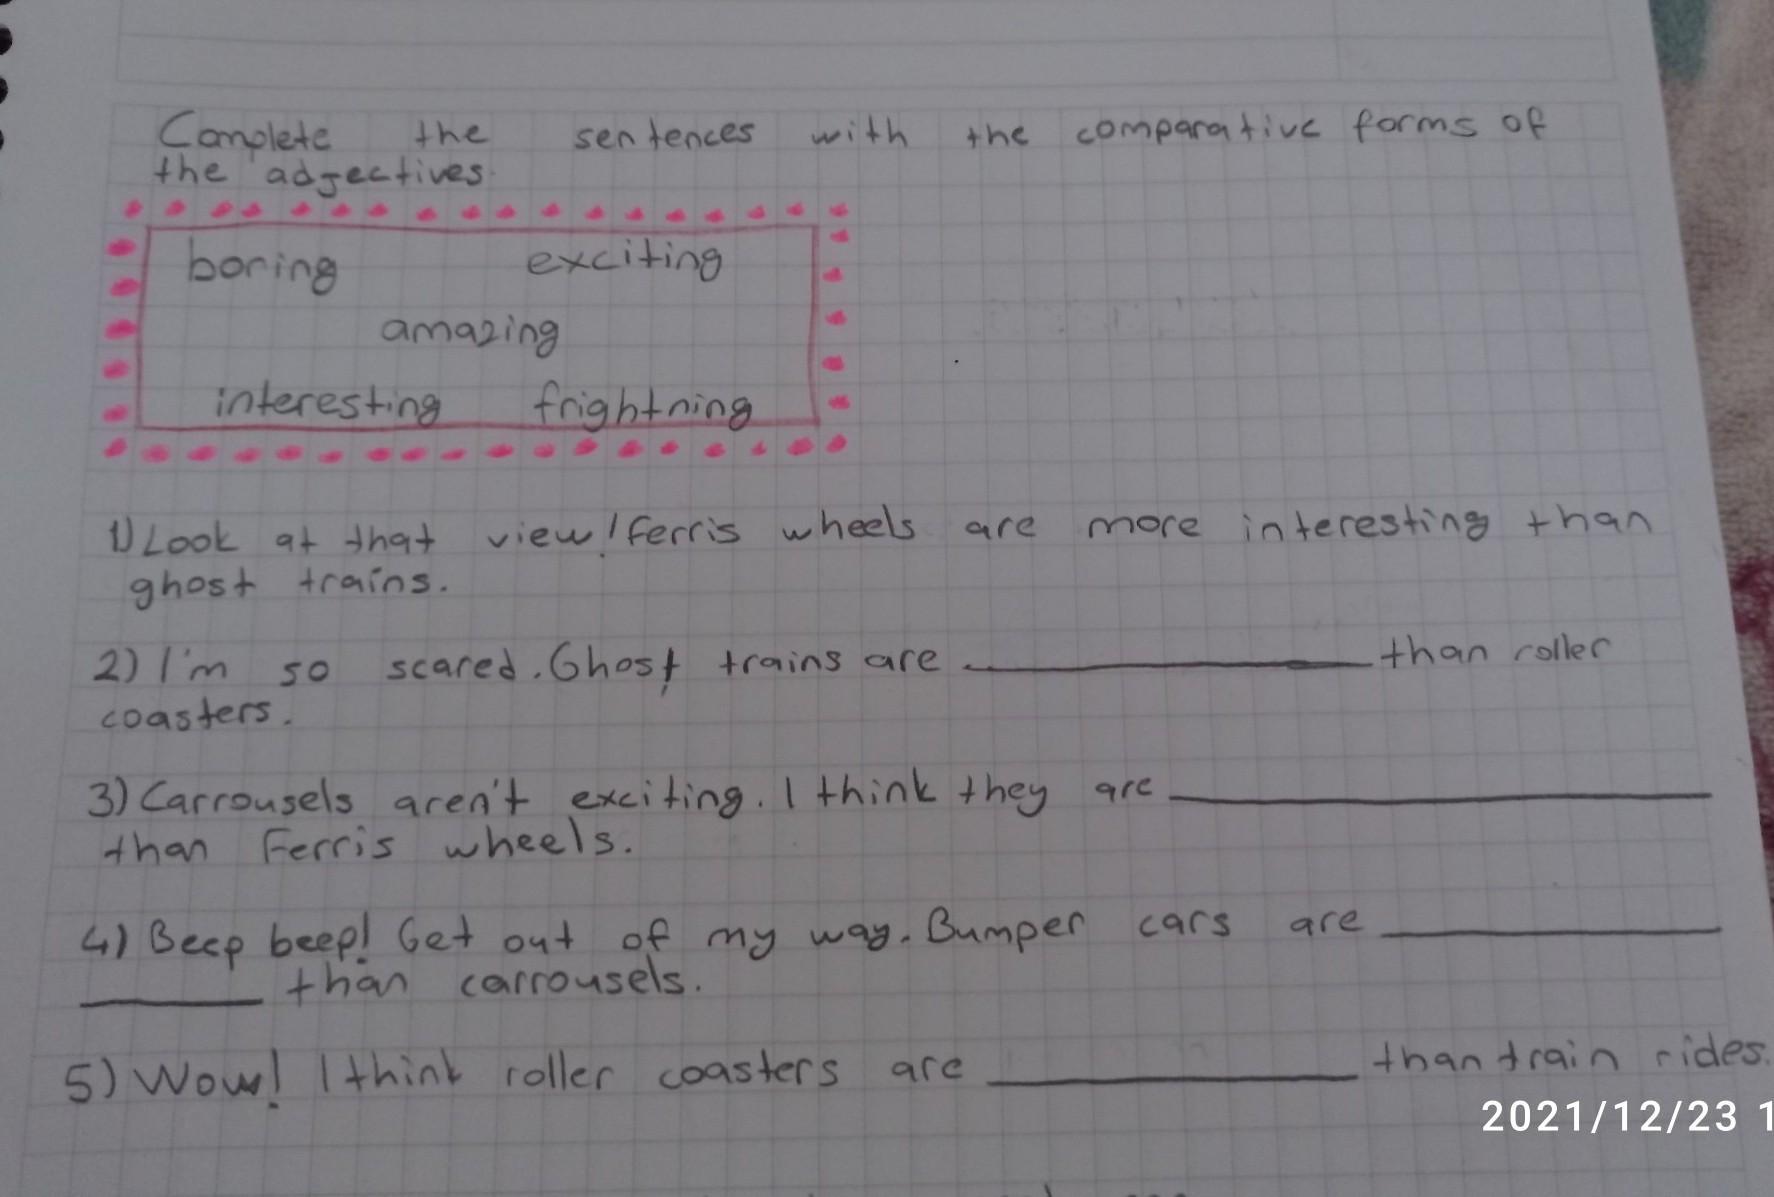 Complete the sentences with the comparative forms of
the adjectives.
boring exciting
amazing
interesting frightning
1) Look at that view! Ferris wheels are more interesting than
ghost trains.
2) I'm so scared. Ghost trains are ____________ than roller
coasters.
3) Carrousels aren't exciting. I think they are ____________
than Ferris wheels.
4) Beep beep! Get out of my way. Bumper cars are ____________
______ than carrousels.
5) Wow! I think roller coasters are ____________ than train rides.
2021/12/23 1